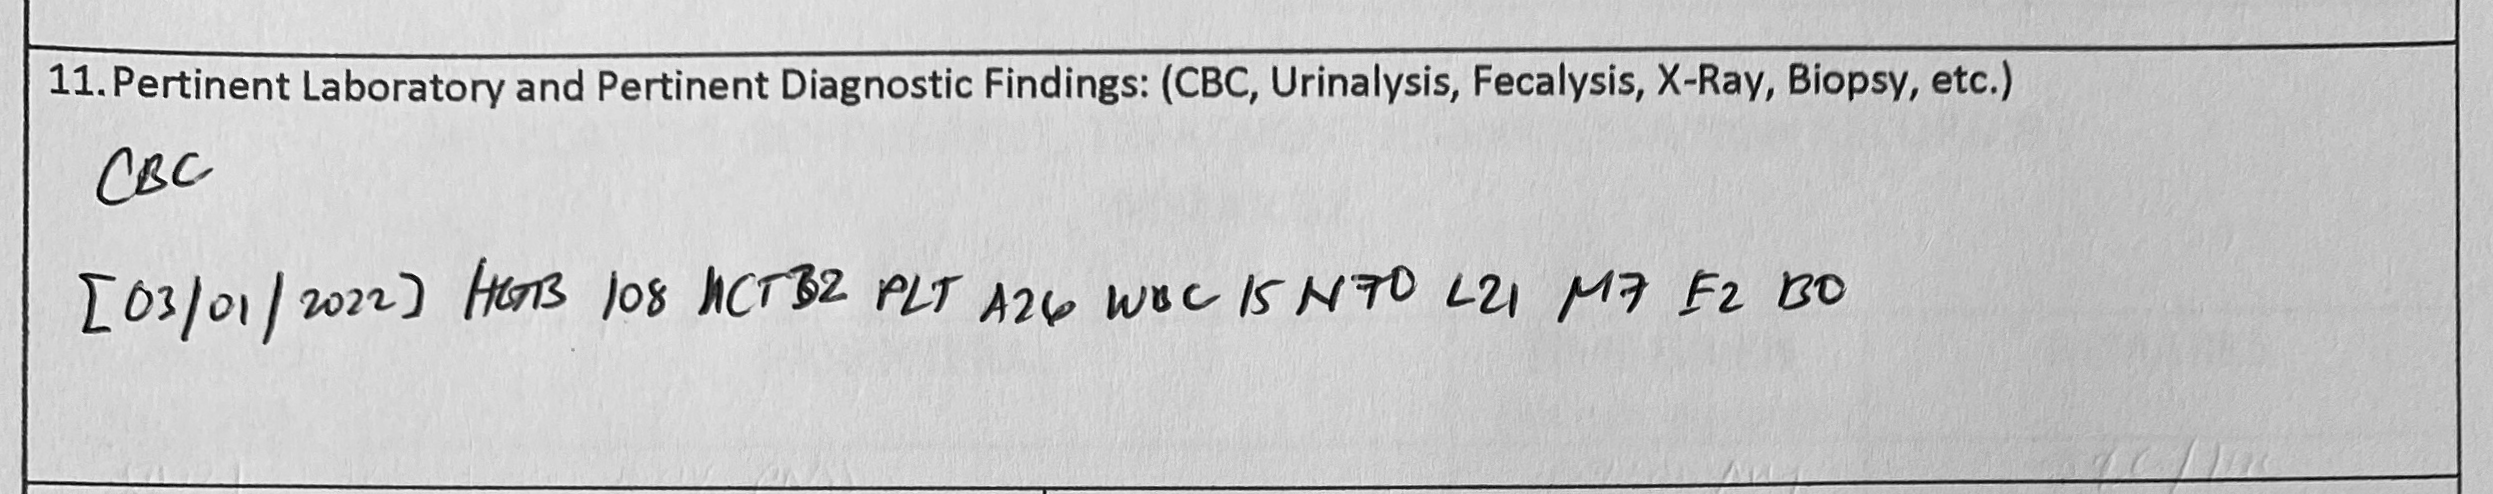 11. Pertinent Laboratory and Pertinent Diagnostic Findings: (CBC, Urinalysis, Fecalysis, X-Ray, Biopsy, etc.)
CBC
[03/01/2022] HGB 108 HCT 32 PLT 426 WBC 15 N70 L21 M7 E2 B0